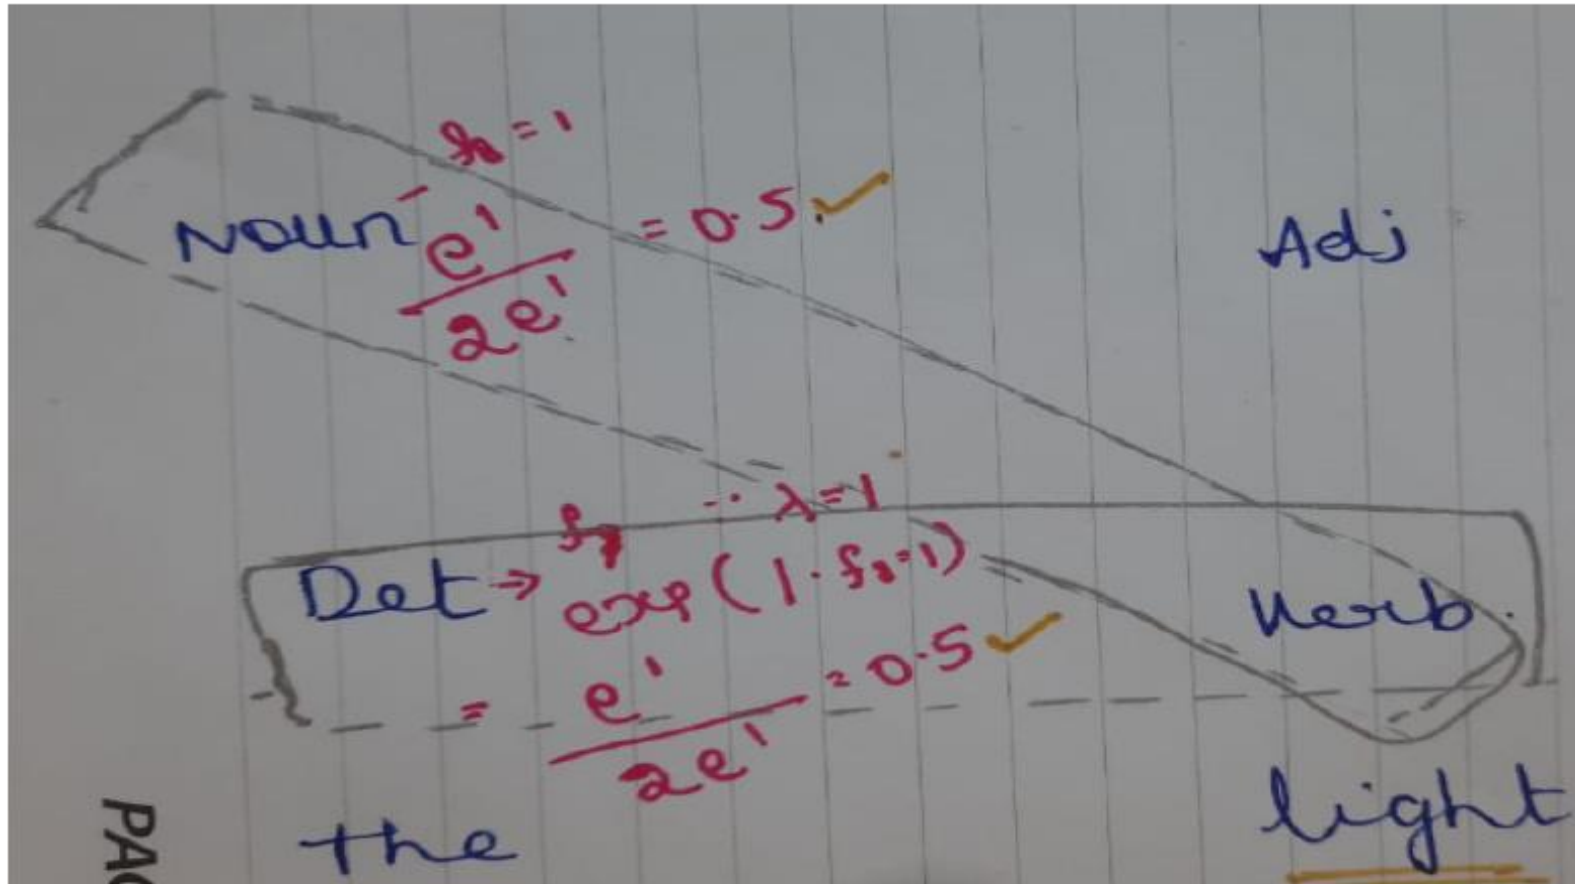 = 1
Noun e¹ / 2e¹ = 0.5 ✓
Adj
λ=1
Det → exp(1·f₈=1)
Verb
= e¹ / 2e¹ = 0.5 ✓
the
light
PAG